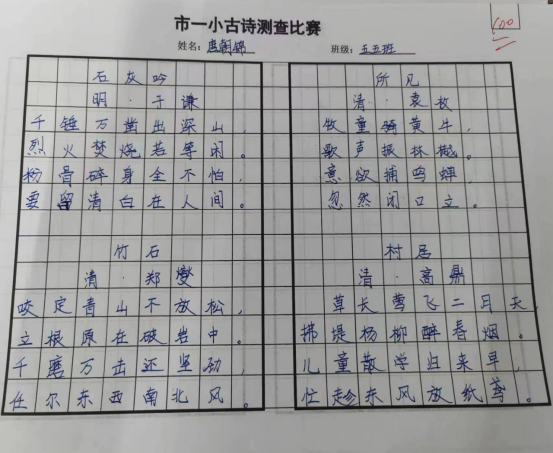 市一小古诗测查比赛
100
姓名：唐朝锦 班级：五五班
石灰吟
明·于谦
千锤万凿出深山，
烈火焚烧若等闲。
粉骨碎身全不怕，
要留清白在人间。
竹石
清·郑燮
咬定青山不放松，
立根原在破岩中。
千磨万击还坚劲，
任尔东西南北风。
所见
清·袁枚
牧童骑黄牛，
歌声振林樾。
意欲捕鸣蝉，
忽然闭口立。
村居
清·高鼎
草长莺飞二月天，
拂堤杨柳醉春烟。
儿童散学归来早，
忙趁东风放纸鸢。